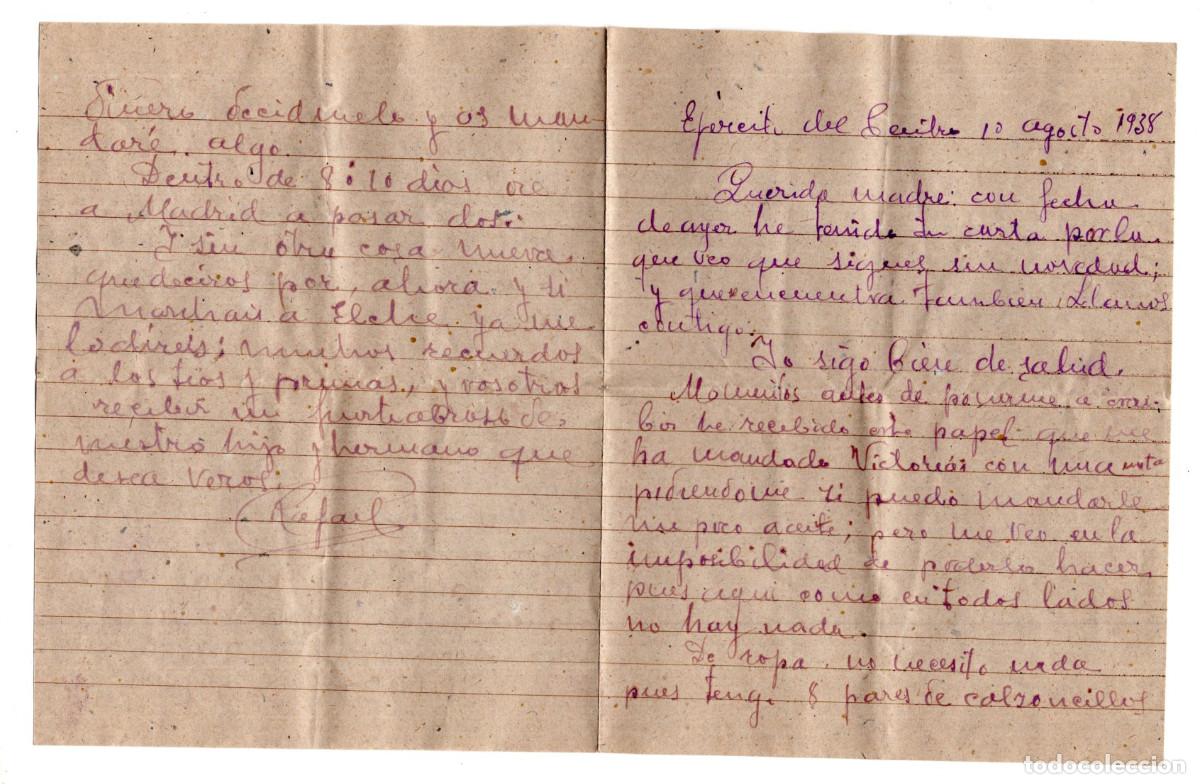 Ejercito del Centro 10 agosto 1938
Querida madre: con fecha
de ayer he tenido tu carta por la
que veo que sigues sin novedad;
y que encuentra tambien
contigo.
Yo sigo bien de salud.
Momentos antes de ponerme a escri-
bir he recibido este papel que me
ha mandado con una nota
pidiendome si puedo mandarle
un poco aceite; pero me veo en la
imposibilidad de poderlo hacer,
pues aqui como en todos lados
no hay nada.
De ropa no necesito nada
pues tengo 8 pares de calzoncillos
Dinero decidmelo y os man-
daré algo.
Dentro de 8 o 10 dias ire
a Madrid a pasar dos.
Y sin otra cosa nueva
que deciros por ahora y si
marchais a Elche ya me
lo direis; muchos recuerdos
a los tios y primas, y vosotros
recibir un fuerte abrazo de
vuestro hijo y hermano que
desea veros.
Rafael
todocoleccion